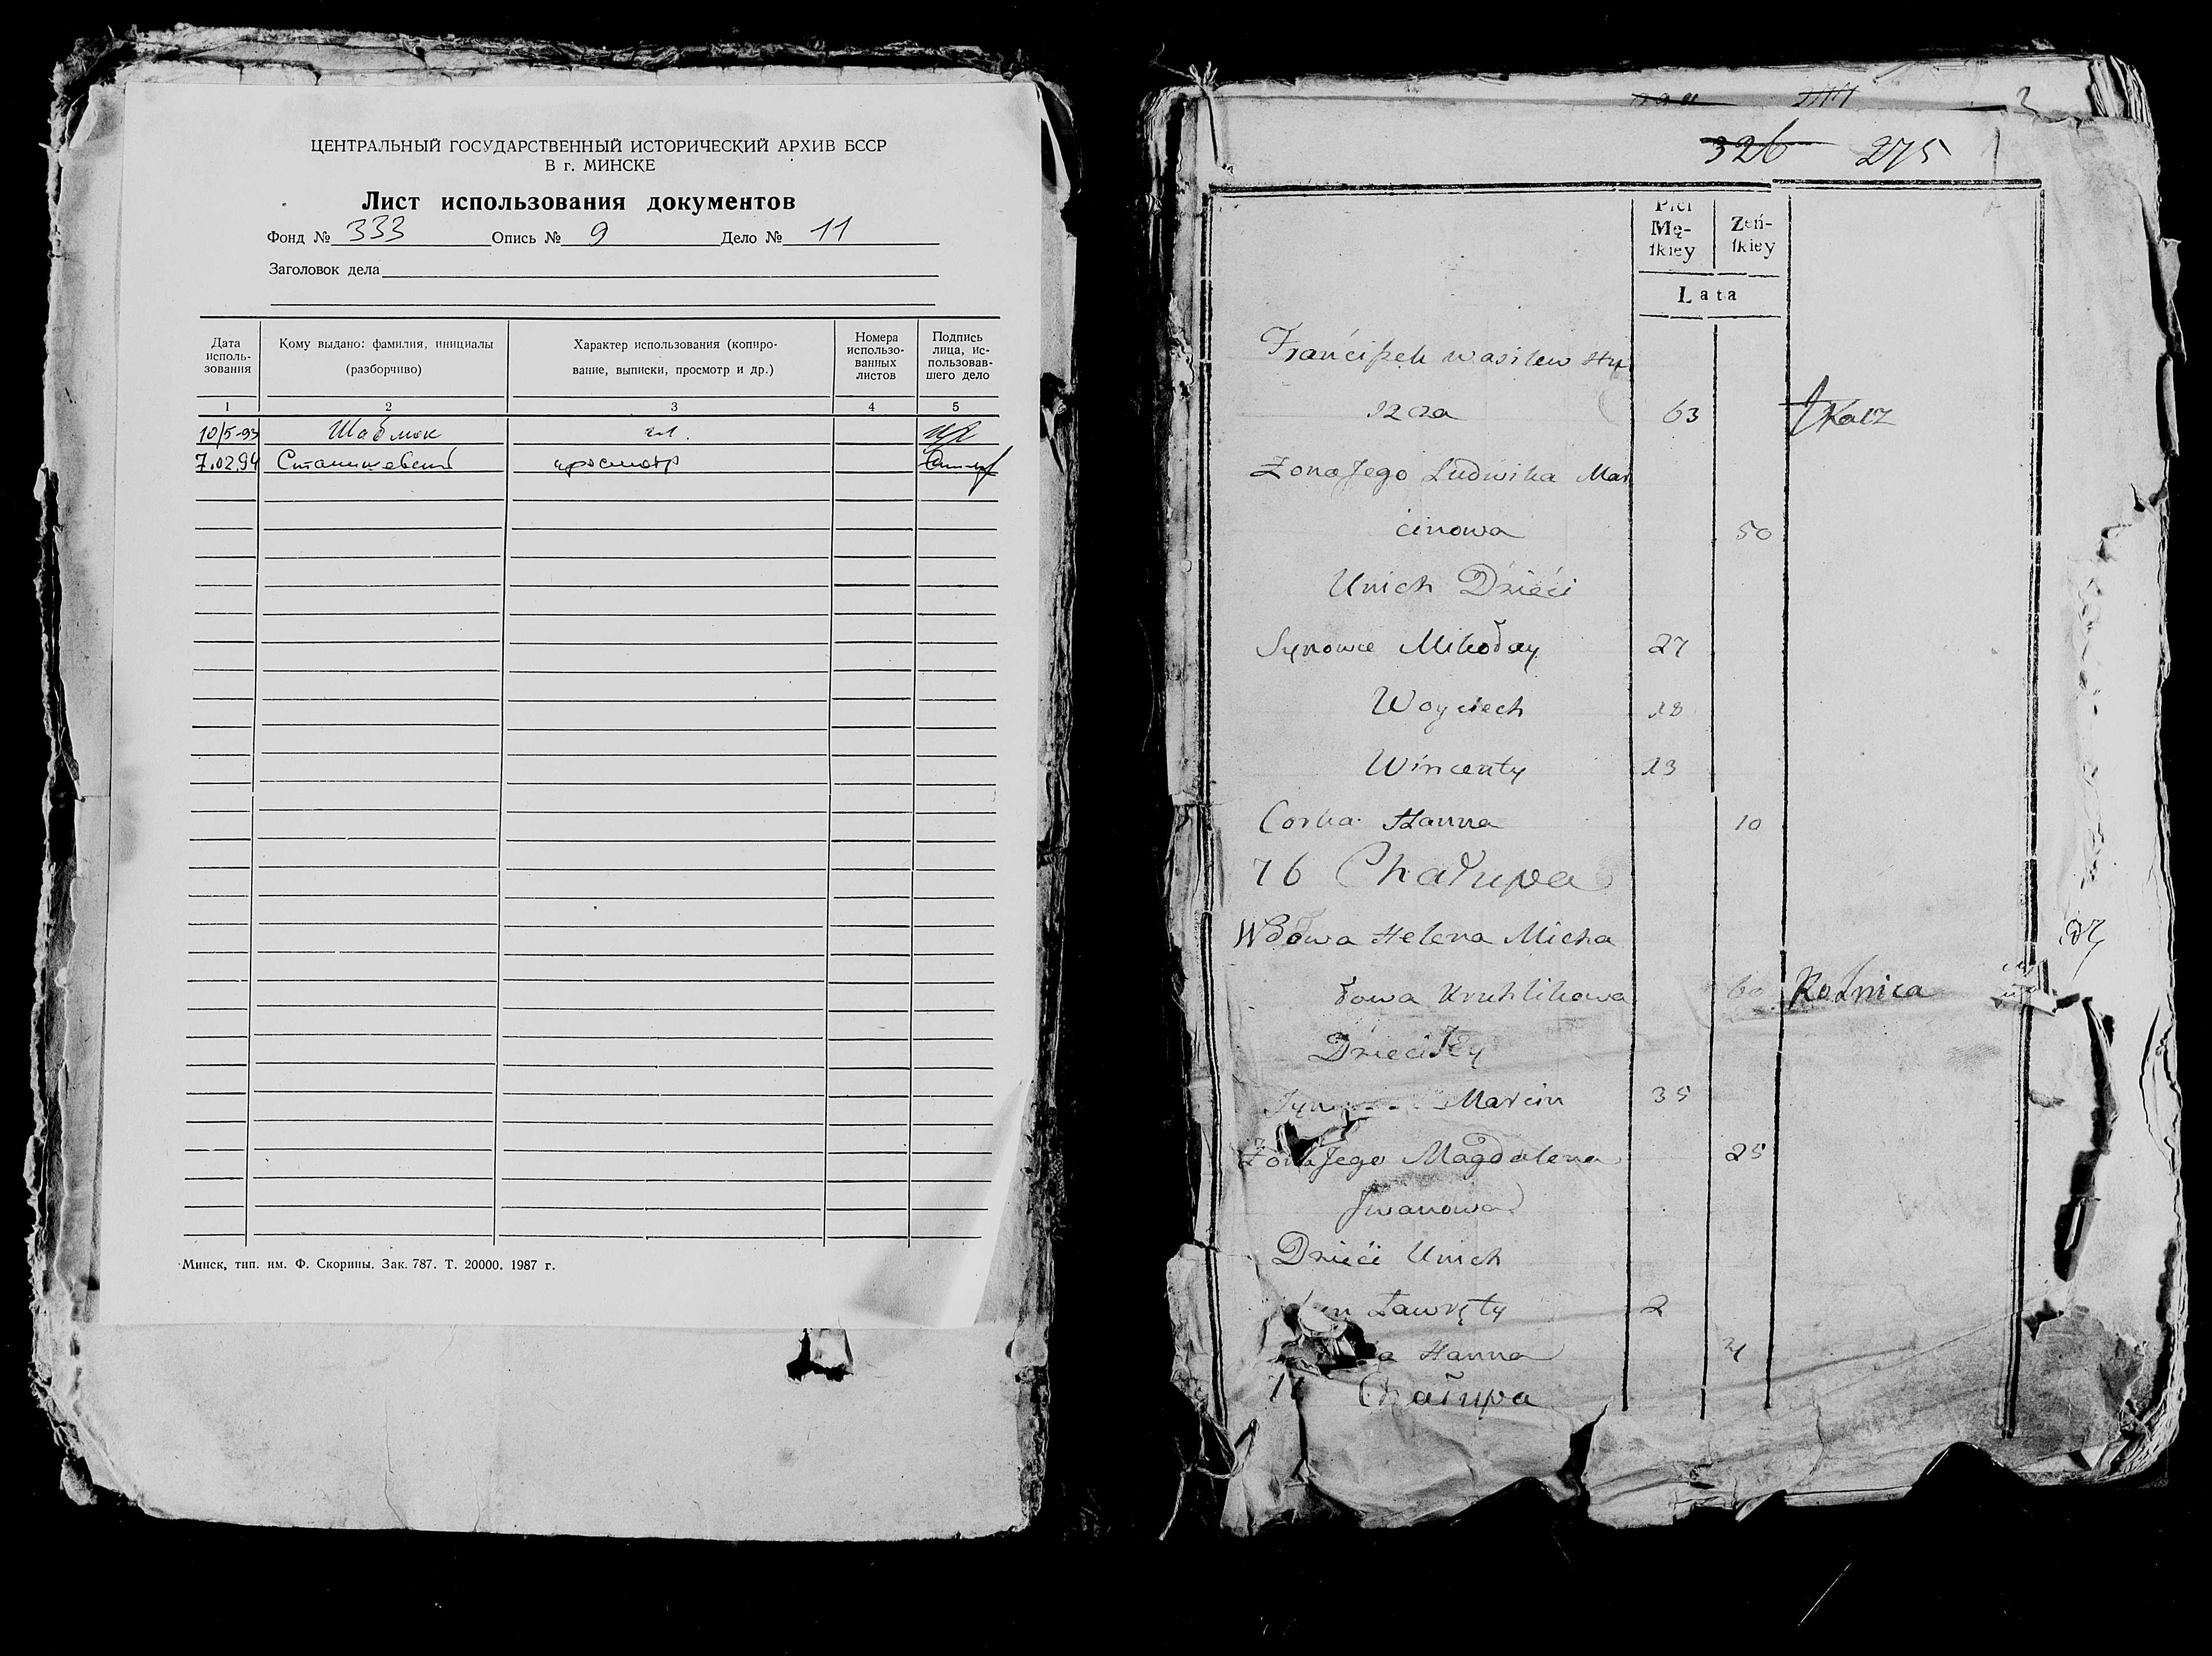 ЦЕНТРАЛЬНЫЙ ГОСУДАРСТВЕННЫЙ ИСТОРИЧЕСКИЙ АРХИВ БССР
В г. МИНСКЕ
Лист использования документов
Фонд № 333 Опись № 9 Дело № 11
Заголовок дела
Дата исполь-зования
Кому выдано: фамилия, инициалы (разборчиво)
Характер использования (копиро-вание, выписки, просмотр и др.)
Номера использо-ванных листов
Подпись лица, ис-пользовав-шего дело
1 2 3 4 5
10/5-93
7.02.94 Станишевский просмотр
Минск, тип. им. Ф. Скорины. Зак. 787. Т. 20000. 1987 г.
326 275
Płci
Mę-ſkiey
Zeń-ſkiey
Lata
Franciſzek Wasilew
63 Tkacz
Zona Jego Ludwika Mar
cinowa 50
Unich Dzieci
Synowie Mikołay 27
Woyciech 18
Wincenty 13
Corka Hanna 10
76 Chałupa
Wdowa Helena Micha
łowa Kruhlikowa 60 Rolnica
Dzieci Jey
Syn Marcin 35
Zona Jego Magdalena 25
Jwanowa
Dzieci Unich
Ławręty 2
Hanna
Chałupa